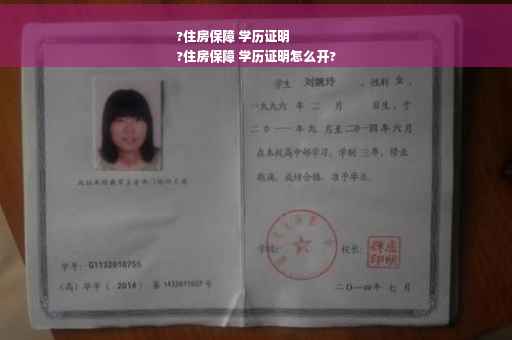 ?住房保障 学历证明
?住房保障 学历证明怎么开?
学生 刘婉玲 ，性别 女 ，
一九九六 年 二 月 日生，于
二〇一一年九 月至二〇一四年六月
在本校高中部学习，学制 三年，修业
期满，成绩合格，准予毕业。
学校： 校长：
学号：G1132010755
（高）毕字（ 2014 ）第 1432011027 号
二〇一四年 七 月